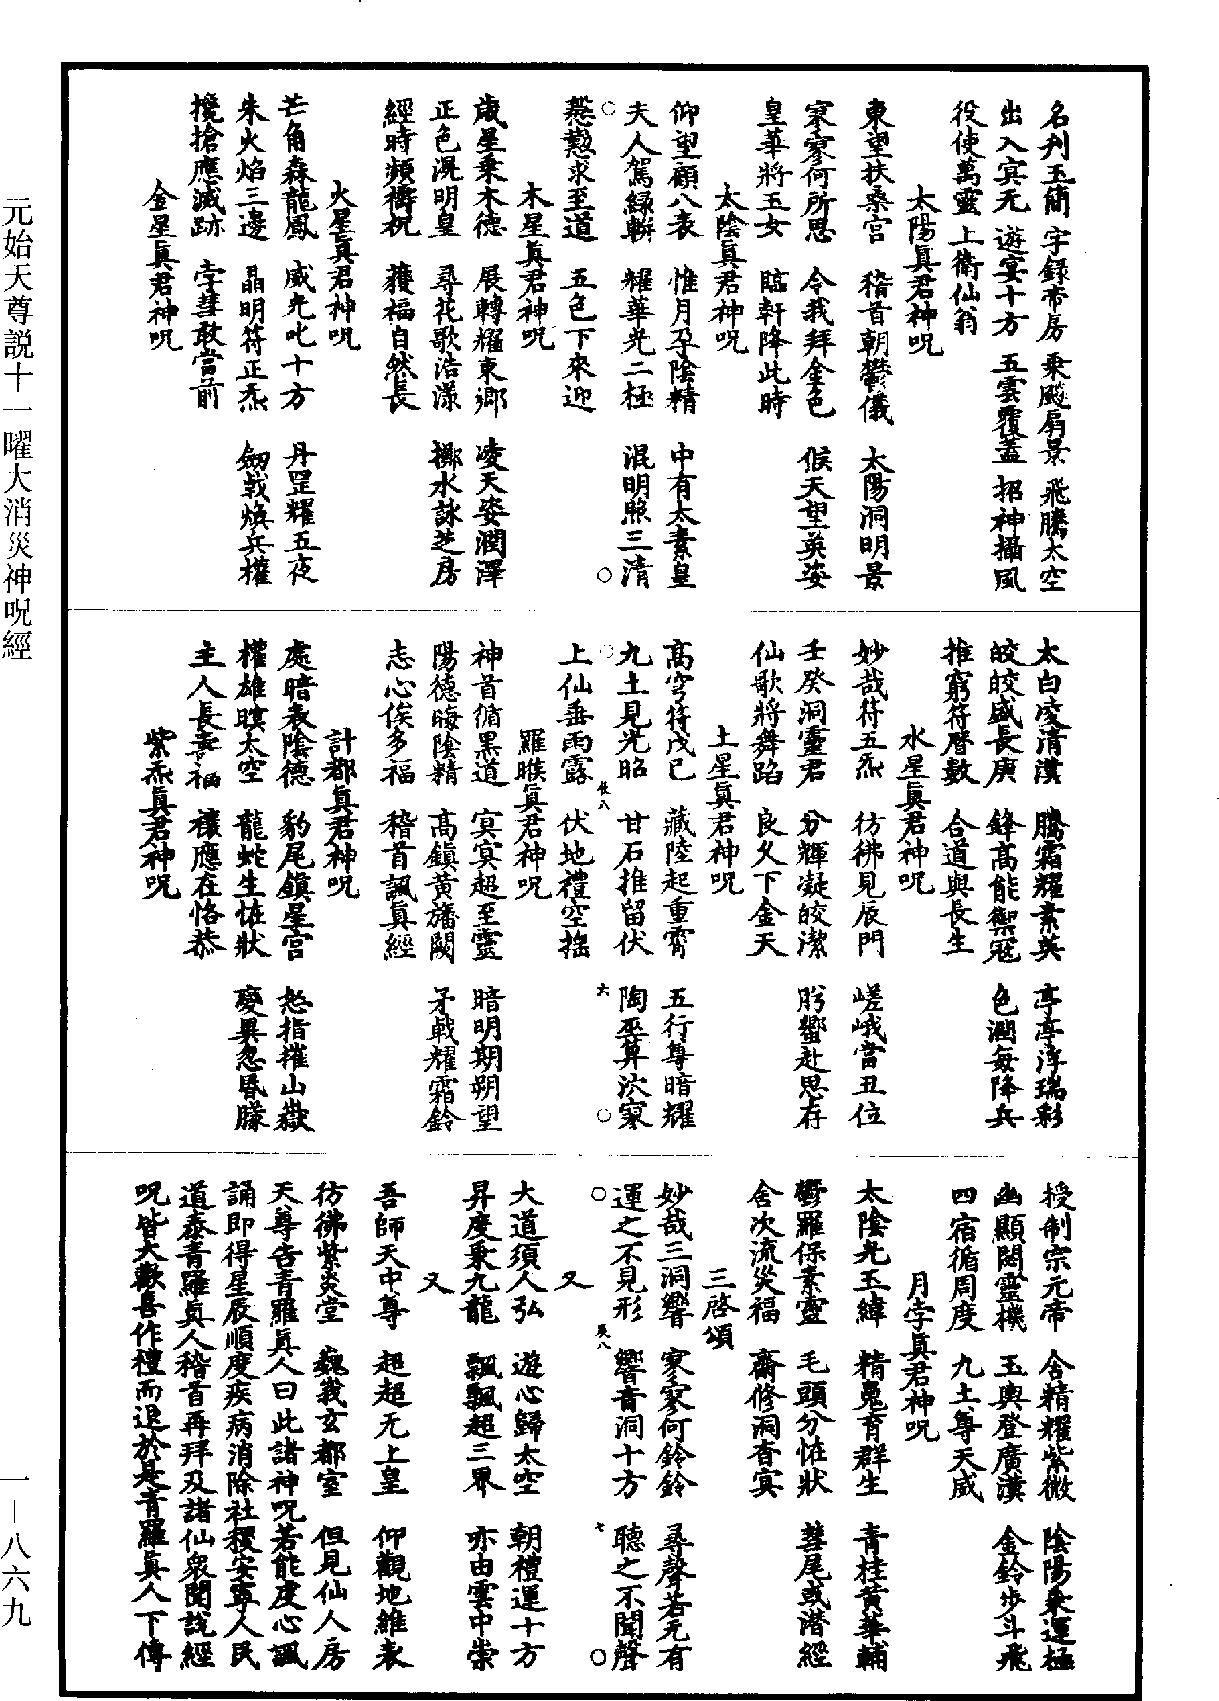 名刋玉簡 字錄帝房 乘飈扇景 飛騰太空
出入宾无 遊宴十方 五雲覆蓋 招神攝風
役使萬靈 上衛仙翁
太陽眞君神呪
東望扶桑宮 稽首朝鬱儀 太陽洞明景
寂寥何所思 令我拜金色 候天望英姿
皇華將玉女 臨軒降此時
太陰眞君神呪
仰望顧八表 惟月孕陰精 中有太素皇
夫人駕綠軿 耀華光二極 混明照三清
慇懃求至道 五色下來迎
木星眞君神呪
歳星乘木德 展轉耀東鄉 凌天姿潤澤
正色混明皇 尋花歌浩漾 擲水詠芝房
經時頻禱祝 穫福自然長
火星眞君神呪
芒角森龍鳳 威光叱十方 丹罡耀五夜
朱火焰三邊 晶明符正炁 劒戟煥兵權
攙搶應滅跡 孛彗敢當前
金星眞君神呪
太白凌清漢 騰霜耀素英 亭亭浮瑞彩
皎皎盛長庚 鋒高能禦寇 色潤每降兵
推窮符曆數 合道與長生
水星眞君神呪
妙哉符五炁 彷彿見辰門 嵯峨當丑位
壬癸洞靈君 分輝凝皎潔 肹蠁赴思存
仙歌將舞蹈 良久下金天
土星眞君神呪
高穹符戊巳 藏陸起重霄 五行尊暗耀
九土見光昭 甘石推留伏 陶巫算泬寥
上仙垂雨露 伏地禮空搖
羅睺眞君神呪
神首循黑道 冥冥超至靈 暗明期朔望
陽德晦陰精 高鎮黃旛闕 矛戟耀霜鈴
志心俟多福 稽首諷眞經
計都眞君神呪
處暗表陰德 豹尾鎮星宮 怒指摧山嶽
權雄瞑太空 龍蛇生恠狀 變異忽昏朦
主人長壽福 禳應在恪恭
紫炁眞君神呪
授制宗元帝 舍精耀紫微 陰陽乘運極
幽顯闊靈機 玉輿登廣漢 金鈴步斗飛
四宿循周度 九土尊天威
月孛眞君神呪
太陰光玉緯 精蒐育群生 青桂黃華輔
鬱羅保素靈 毛頭分恠狀 彗尾或潛經
舍次流災福 齋修洞杳宾
三啓頌
妙哉三洞響 寂寥何鈴鈴 尋聲若无有
運之不見形 響音洞十方 聽之不聞聲
又
大道須人弘 遊心歸太空 朝禮運十方
昇度乘九龍 飄飄超三界 亦由雲中崇
又
吾師天中尊 超超无上皇 仰觀地維表
彷彿紫炎堂 巍峩玄都室 但見仙人房
天尊告青羅眞人曰此諸神呪若能虔心諷
誦即得星辰順度疾病消除社稷安寧人民
道泰青羅眞人稽首再拜及諸仙衆聞說經
呪皆大歡喜作禮而退於是青羅眞人下傳
元始天尊説十一曜大消災神呪經
一—八六九